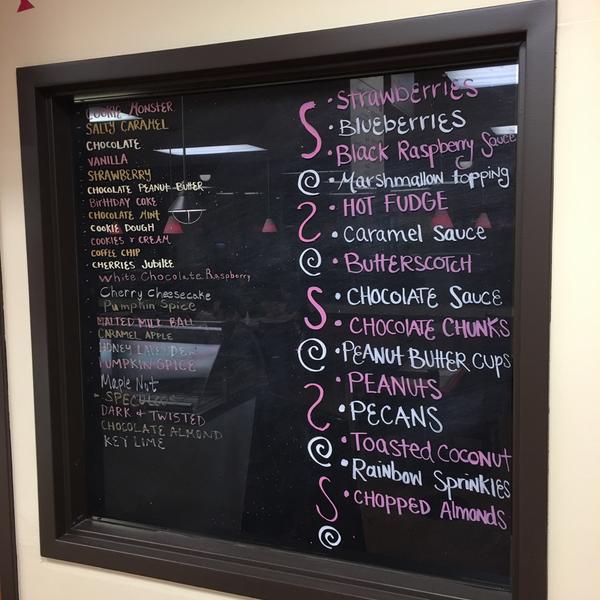 COOKIE MONSTER
SALTY CARAMEL
CHOCOLATE
VANILLA
STRAWBERRY
CHOCOLATE PEANUT BUTTER
BIRTHDAY CAKE
CHOCOLATE MINT
COOKIE DOUGH
COOKIES & CREAM
COFFEE CHIP
CHERRIES JUBILEE
White Chocolate Raspberry
Cherry Cheesecake
Pumpkin Spice
MALTED MILK BALL
CARAMEL APPLE
HONEY
PUMPKIN SPICE
Maple Nut
SPECULOOS
DARK & TWISTED
CHOCOLATE ALMOND
KEY LIME
Strawberries
BLUEBERRIES
Black Raspberry Sauce
Marshmallow topping
HOT FUDGE
Caramel Sauce
BUTTERSCOTCH
CHOCOLATE SAUCE
CHOCOLATE CHUNKS
PEANUT BUTTER CUPS
PEANUTS
PECANS
Toasted COCONUT
Rainbow Sprinkles
CHOPPED Almonds